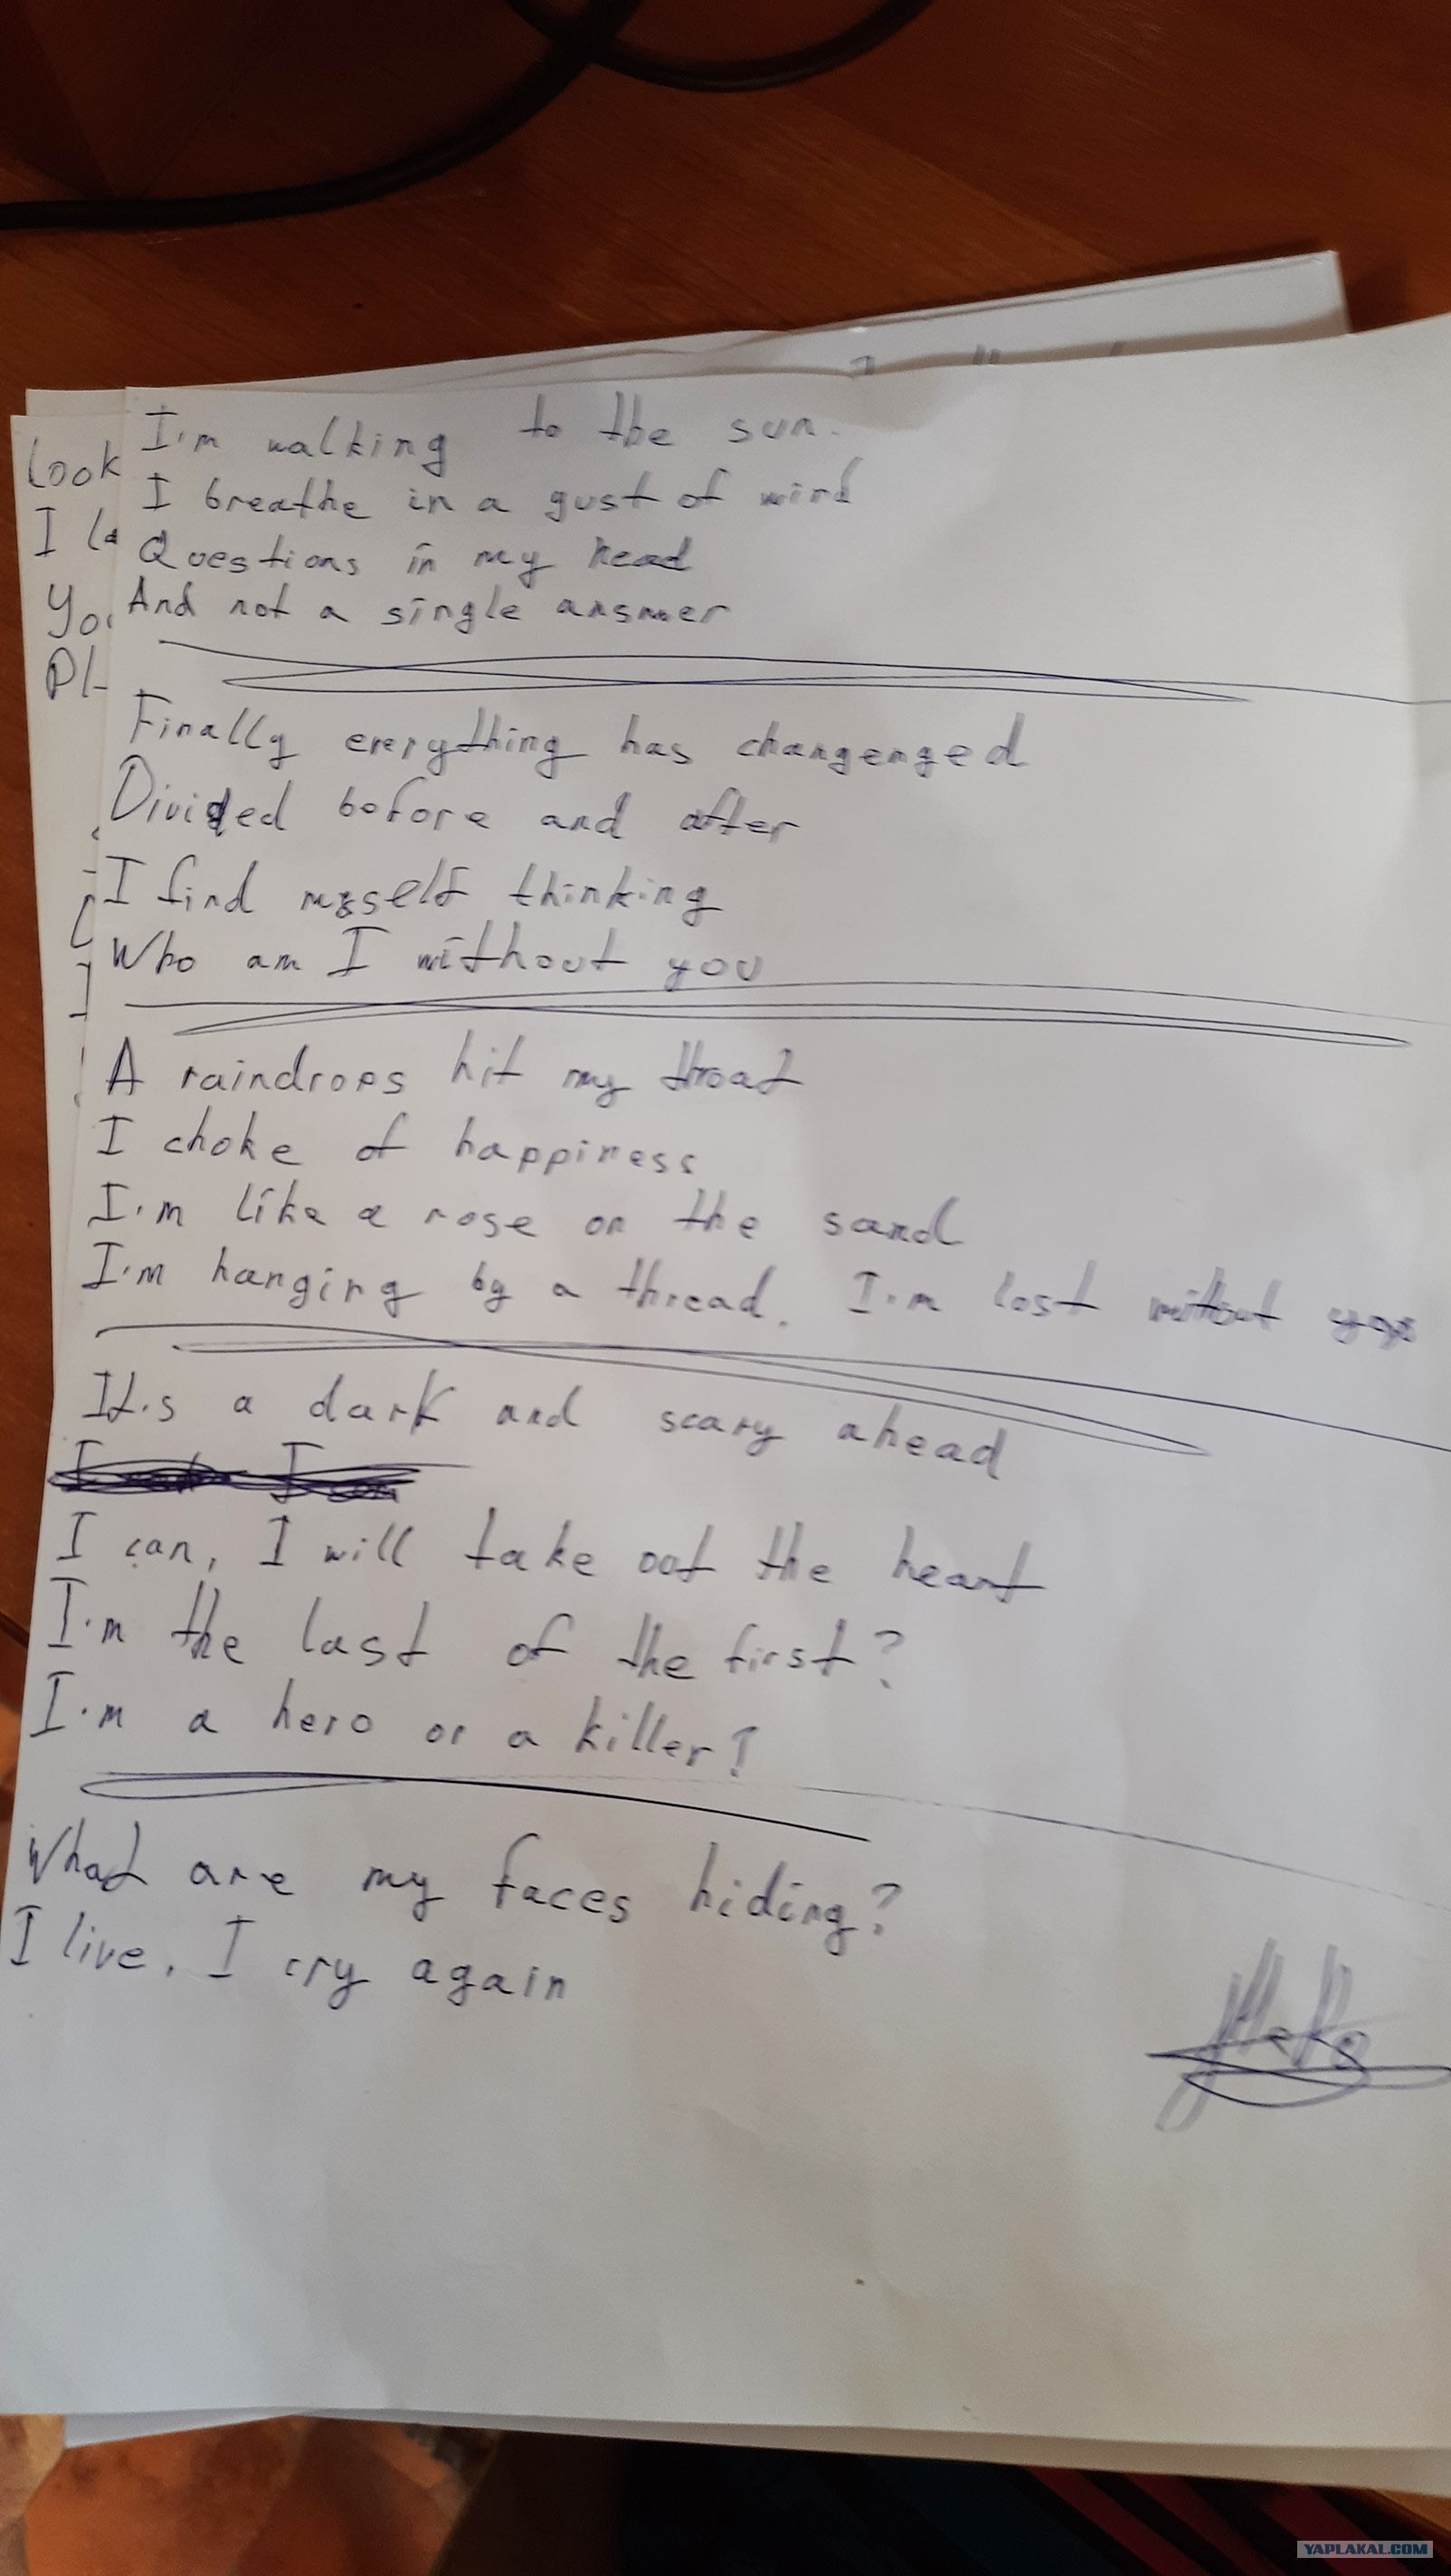 I'm walking to the sun.
I breathe in a gust of wind
Questions in my head
And not a single answer
Look
I la
You
Pl
Finally everything has changenged
Divided before and after
I find myself thinking
Who am I without you
A raindrops hit my throat
I choke of happiness
I'm like a rose on the sand
I'm hanging by a thread. I'm lost without you
It's a dark and scary ahead
I can, I will take out the heart
I'm the last of the first?
I'm a hero or a killer?
What are my faces hiding?
I live, I cry again
YAPLAKAL.COM